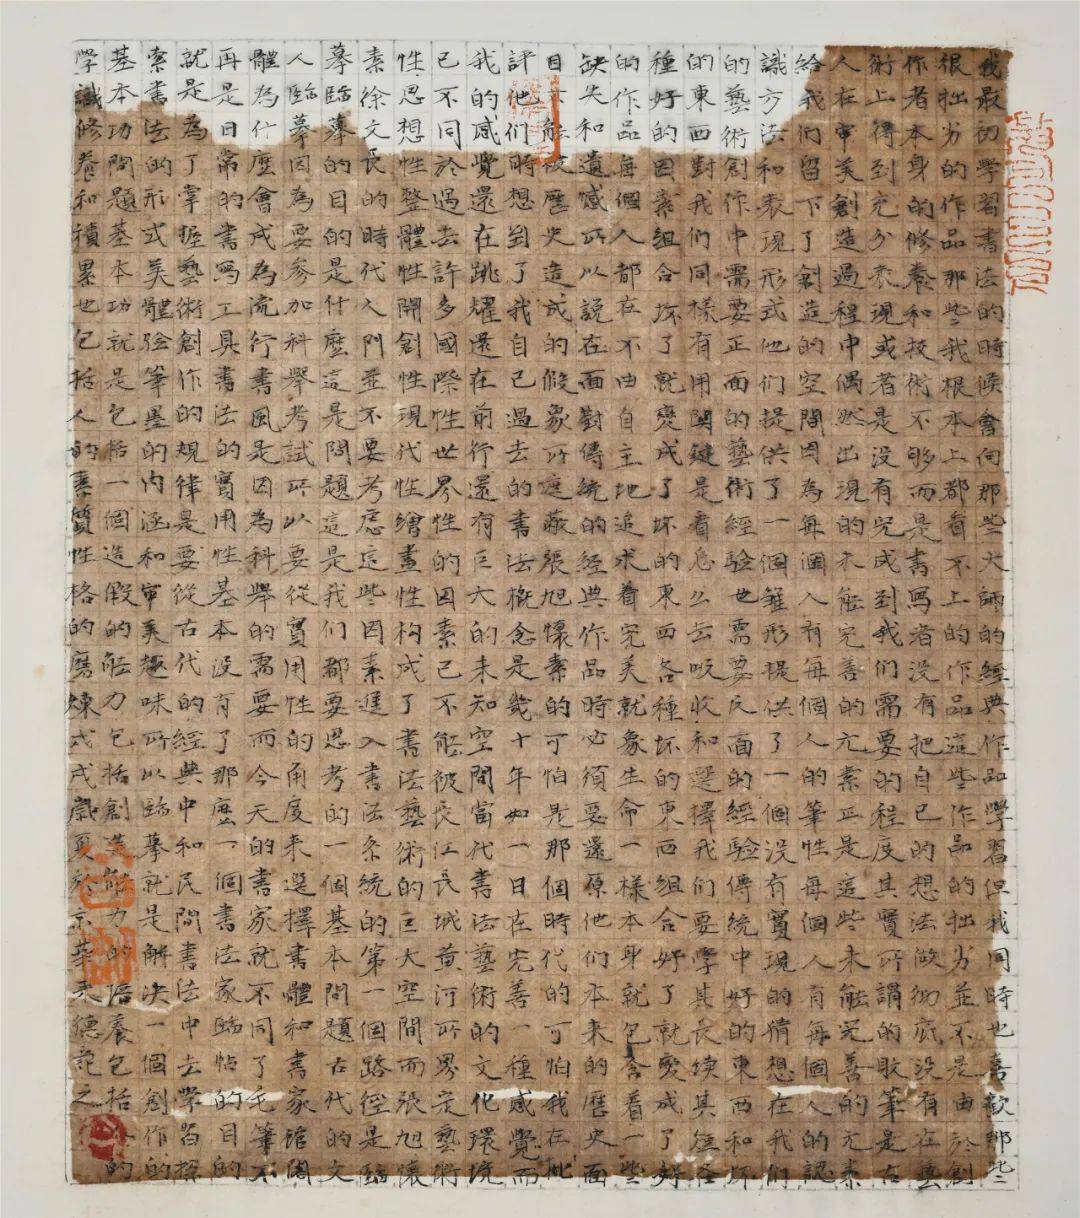 我最初學習書法的時候會向那些大師的經典作品學習但我同時也喜歡那些
很拙劣的作品那些我根本上都看不上的作品這些作品的拙劣並不是由於創
作者本身的修養和技術不够而是書寫者没有把自己的想法做彻底没有在藝
術上得到充分表現或者是没有完成到我們需要的程度其實所謂的敗筆是古
人在审美創造過程中偶然出現的未能完善的元素正是這些未能完善的元素
给我們留下了創造的空間因為每個人有每個人的筆性每個人有每個人的認
識方法和表現形式他們提供了一個雛形提供了一個没有實現的猜想在我們
的藝術創作中需要正面的藝術經驗也需要反面的經驗傳統中好的東西和坏
的東西對我們同樣有用関鍵是看怎么去吸收和選擇我們要學其長續其短各
種好的因素組合坏了就變成了坏的東西各種坏的東西組合好了就變成了好
的作品每個人都在不由自主地追求着完美就象生命一樣本身就包含着一些
缺失和遺感所以説在面對傳統的經典作品時必須要還原他們本来的歷史面
目能被歷史造成的假象所遮蔽張旭懷素的可怕是那個時代的可怕我在批
評他們時想到了我自己過去的書法概念是幾十年如一日在完善一種感覺而
我的感覺還在跳耀還在前行還有巨大的未知空間當代書法藝術的文化環境
已不同於過去許多國際性世界性的因素已不能被長江長城黄河所界定藝術
性思想性整體性開創性現代性繪畫性构成了書法藝術的巨大空間而張旭懷
素徐文長的時代人們並不要考慮這些因素進入書法系統的第一個路徑是臨
摹臨摹的目的是什麽這是問題這是我們都要思考的一個基本問題古代的文
人臨摹因為要參加科舉考試所以要從實用性的角度来選擇書體和書家館閣
體為什麽會成為流行書風是因為科舉的需要而今天的書家就不同了毛筆不
再是日常的書寫工具書法的實用性基本没有了那麽一個書法家臨帖的目的
就是為了掌握藝術創作的規律是要從古代的經典中和民間書法中去學習探
索書法的形式美體验筆墨的内涵和审美趣味所以臨摹就是解决一個創作的
基本功問題基本功就是包括一個造假的能力包括創造能力的培養包括的
學識修養和積累也包括人的素質性格的磨煉戌歲夏於京華德記之